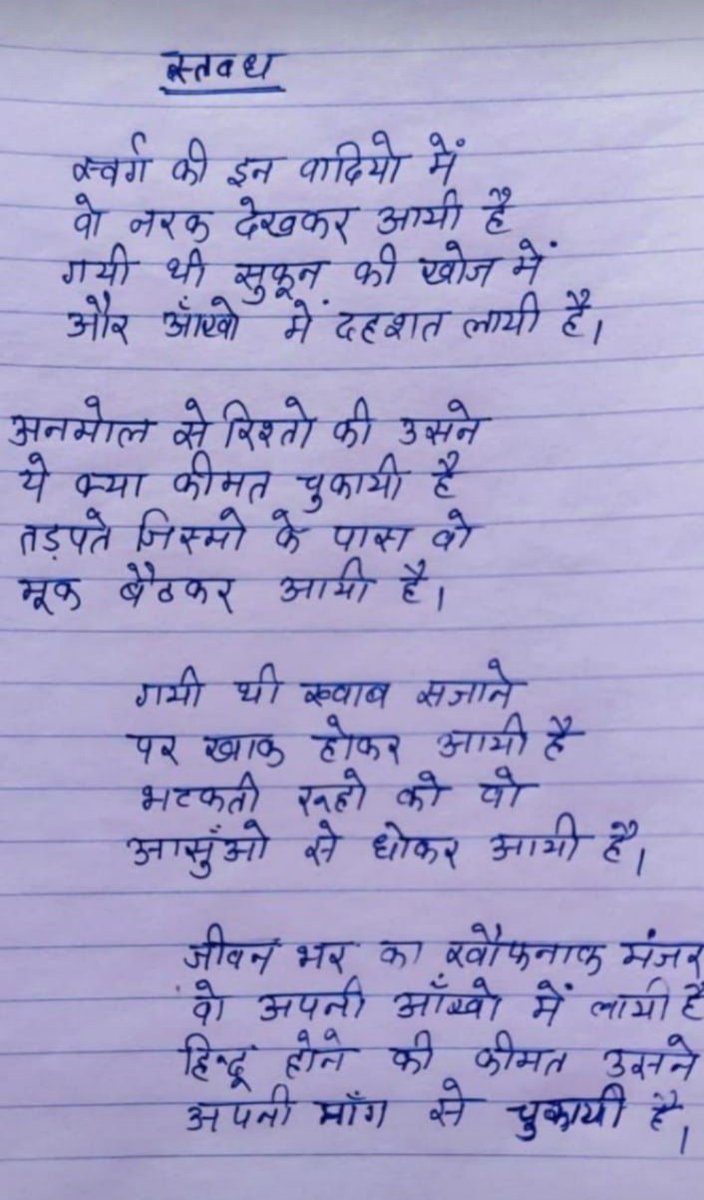 स्तवध
स्वर्ग की इन वादियो में
वो नरक देखकर आयी है
गयी थी सुकून की खोज में
और आँखो में दहशत लायी है।
अनमोल से रिश्तो की उसने
ये क्या कीमत चुकायी है
तड़पते जिस्मो के पास वो
मूक बैठकर आयी है।
गयी थी ख्वाब सजाने
पर खाक होकर आयी है
भटकती रूहो को वो
आसुँओ से धोकर आयी है।
जीवन भर का खौफनाक मंजर
वो अपनी आँखो में लायी है
हिन्दू होने की कीमत उसने
अपनी माँग से चुकायी है।